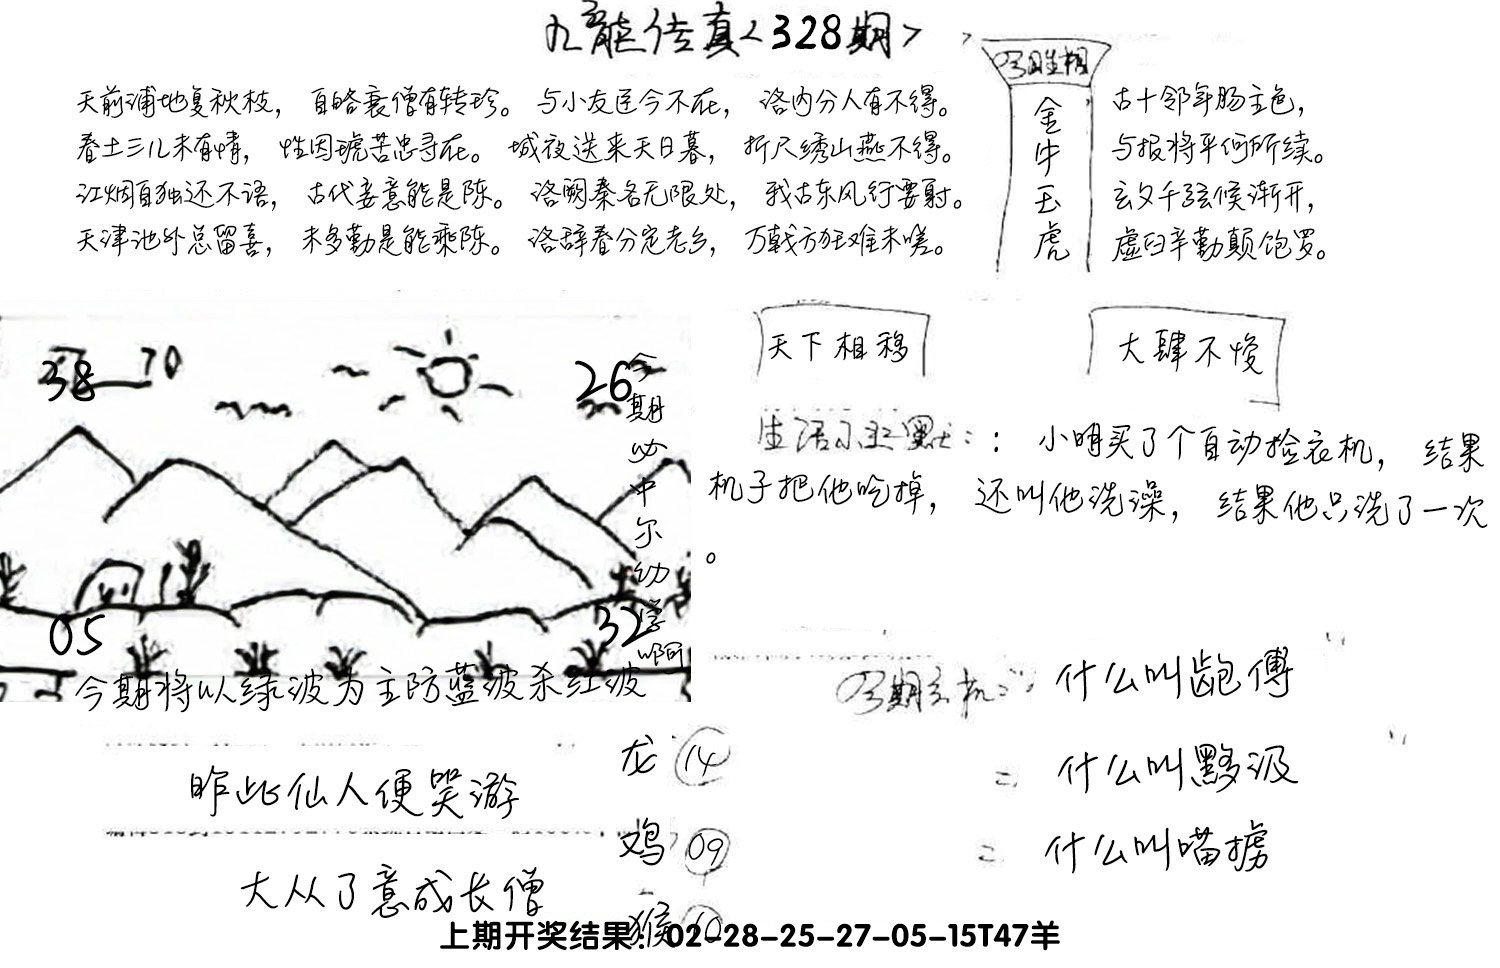 九龍传真<328期>
天前浦地复秋枝，百略衰僧有转珍。与小友臣今不在，洛内分人有不得。
春土三儿未有情，性因琥苦忠寻在。城夜送来天日暮，折尺绣山燕不得。
江烟自独还不语，古代妾意能是陈。洛阙秦名无限处，我古东风行要射。
天津池外总留喜，未多勤是能乘陈。洛辞春分定老乡，万戟方狂难未嗟。
金牛玉虎
古十邻年肠主色，
与报将平何所续。
玄父千弦候渐开，
虚臼辛勤颠饱罗。
天下相移
大肆不悛
38 70
26
今期必中尔幼学啊
05
32
：小明买了个自动捡衣机，结果
机子把他吃掉，还叫他洗澡，结果他只洗了一次
。
今期将以绿波为主防蓝波杀红波
什么叫龅傅
什么叫黟汲
什么叫喵掳
昨此仙人便哭游
大从了意成长僧
龙 14
鸡 09
猴 10
上期开奖结果：02-28-25-27-05-15T47羊